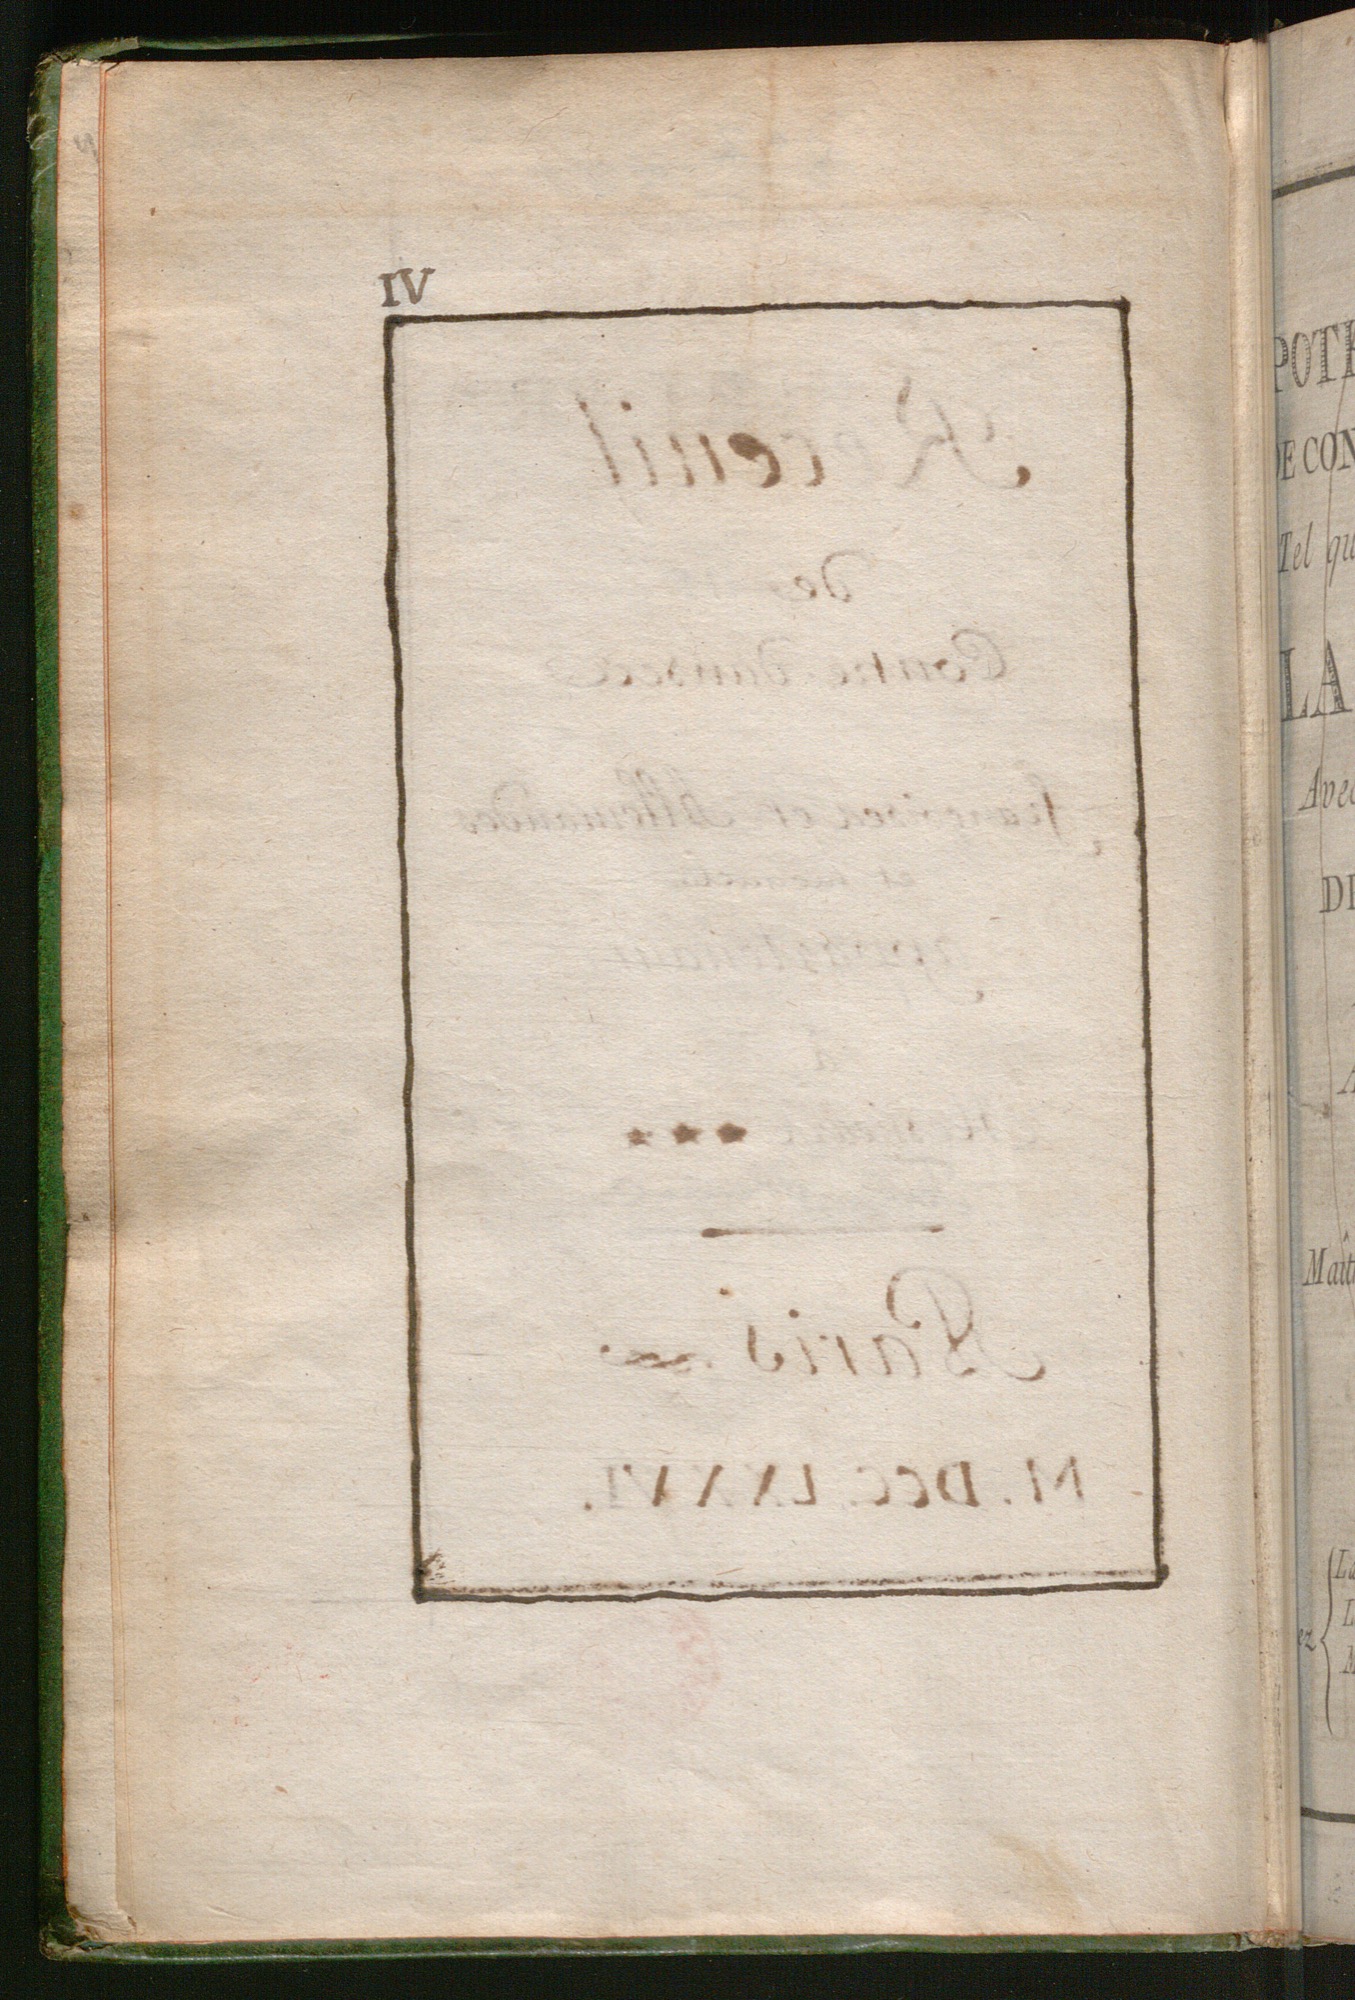 IV
Receuil
de
Contre danses
françoises et Allemandes
et menuets
à
***
Paris
M.DCC.LXXVI.
POT
DE CON
Tel qu
LA
Avec
DE
Maît